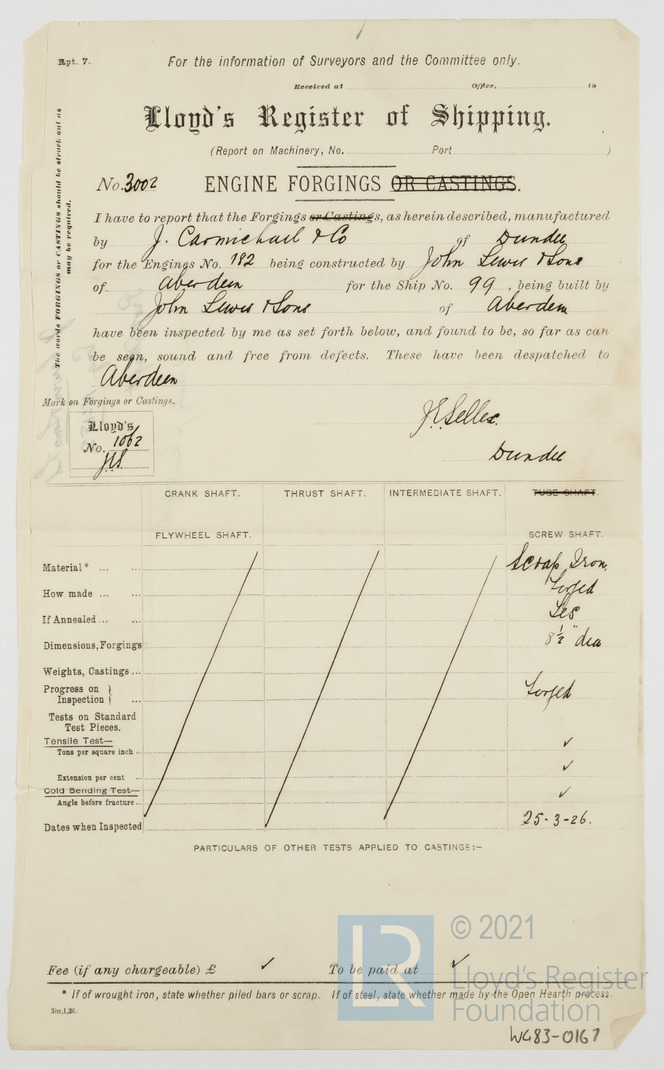 Rpt. 7.
For the information of Surveyors and the Committee only.
Received at Office, 19
Lloyd's Register of Shipping.
(Report on Machinery, No. Port )
No. 3002 ENGINE FORGINGS OR CASTINGS.
The words FORGINGS or CASTINGS should be struck out as
may be required.
I have to report that the Forgings or Castings, as herein described, manufactured
by J. Carmichael & Co of Dundee
for the Engines No. 182 being constructed by John Lewis & Sons
of Aberdeen for the Ship No. 99, being built by
John Lewis & Sons of Aberdeen
have been inspected by me as set forth below, and found to be, so far as can
be seen, sound and free from defects. These have been despatched to
Aberdeen
Mark on Forgings or Castings.
Lloyd's
No. 1062
Dundee
CRANK SHAFT. THRUST SHAFT. INTERMEDIATE SHAFT. TUBE SHAFT.
FLYWHEEL SHAFT. SCREW SHAFT.
Material* ... ... Scrap Iron
How made ... ... Forged
If Annealed ... ... Yes
Dimensions, Forgings 8½" dia
Weights, Castings ...
Progress on } Inspection } Forged
Tests on Standard
Test Pieces.
Tensile Test— ✓
Tons per square inch ..
Extension per cent .. ✓
Cold Bending Test— ✓
Angle before fracture ..
Dates when Inspected 25-3-26.
PARTICULARS OF OTHER TESTS APPLIED TO CASTINGS:-
Fee (if any chargeable) £ ✓ To be paid at ✓
* If of wrought iron, state whether piled bars or scrap. If of steel, state whether made by the Open Hearth process.
LR © 2021
Lloyd's Register
Foundation
W483-0167